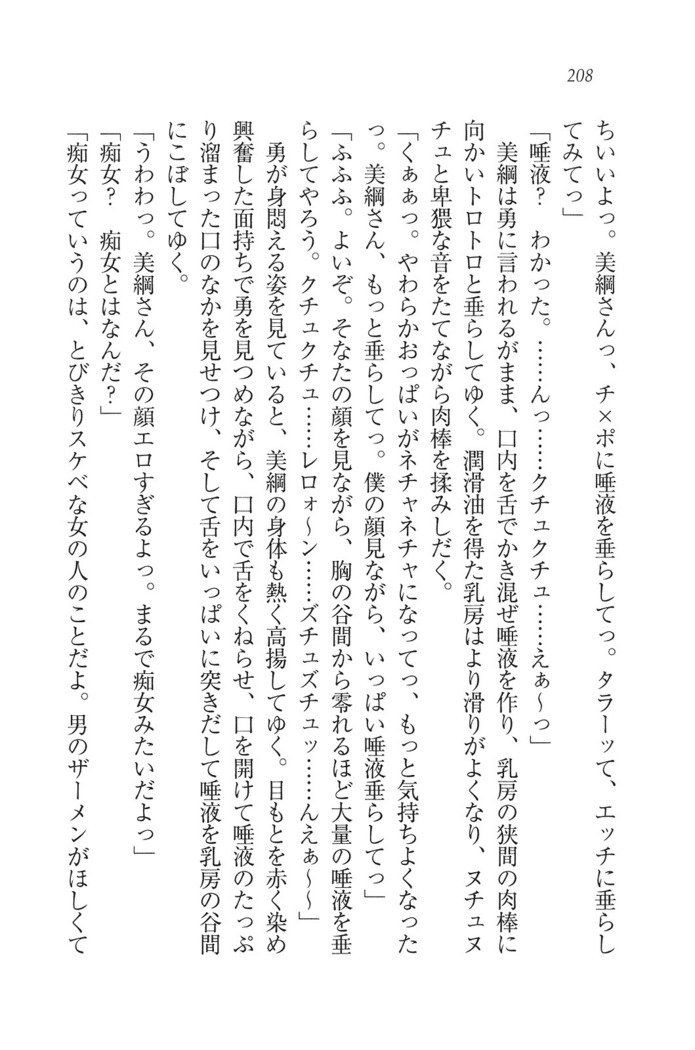 208
ちいいよっ。美綱さんっ、チ×ポに唾液を垂らしてっ。タラーッて、エッチに垂らし
てみてっ」
「唾液？　わかった。……んっ……クチュクチュ……えぁ～っ」
美綱は勇に言われるがまま、口内を舌でかき混ぜ唾液を作り、乳房の狭間の肉棒に
向かいトロトロと垂らしてゆく。潤滑油を得た乳房はより滑りがよくなり、ヌチュヌ
チュと卑猥な音をたてながら肉棒を揉みしだく。
「くぁぁっ。やわらかおっぱいがネチャネチャになってっ、もっと気持ちよくなった
っ。美綱さん、もっと垂らしてっ。僕の顔見ながら、いっぱい唾液垂らしてっ」
「ふふふ。よいぞ。そなたの顔を見ながら、胸の谷間から零れるほど大量の唾液を垂
らしてやろう。クチュクチュ……レロォ～ン……ズチュズチュッ……んえぁ～～」
勇が身悶える姿を見ていると、美綱の身体も熱く高揚してゆく。目もとを赤く染め
興奮した面持ちで勇を見つめながら、口内で舌をくねらせ、口を開けて唾液のたっぷ
り溜まった口のなかを見せつけ、そして舌をいっぱいに突きだして唾液を乳房の谷間
にこぼしてゆく。
「うわわっ。美綱さん、その顔エロすぎるよっ。まるで痴女みたいだよっ」
「痴女？　痴女とはなんだ？」
「痴女っていうのは、とびきりスケベな女の人のことだよ。男のザーメンがほしくて